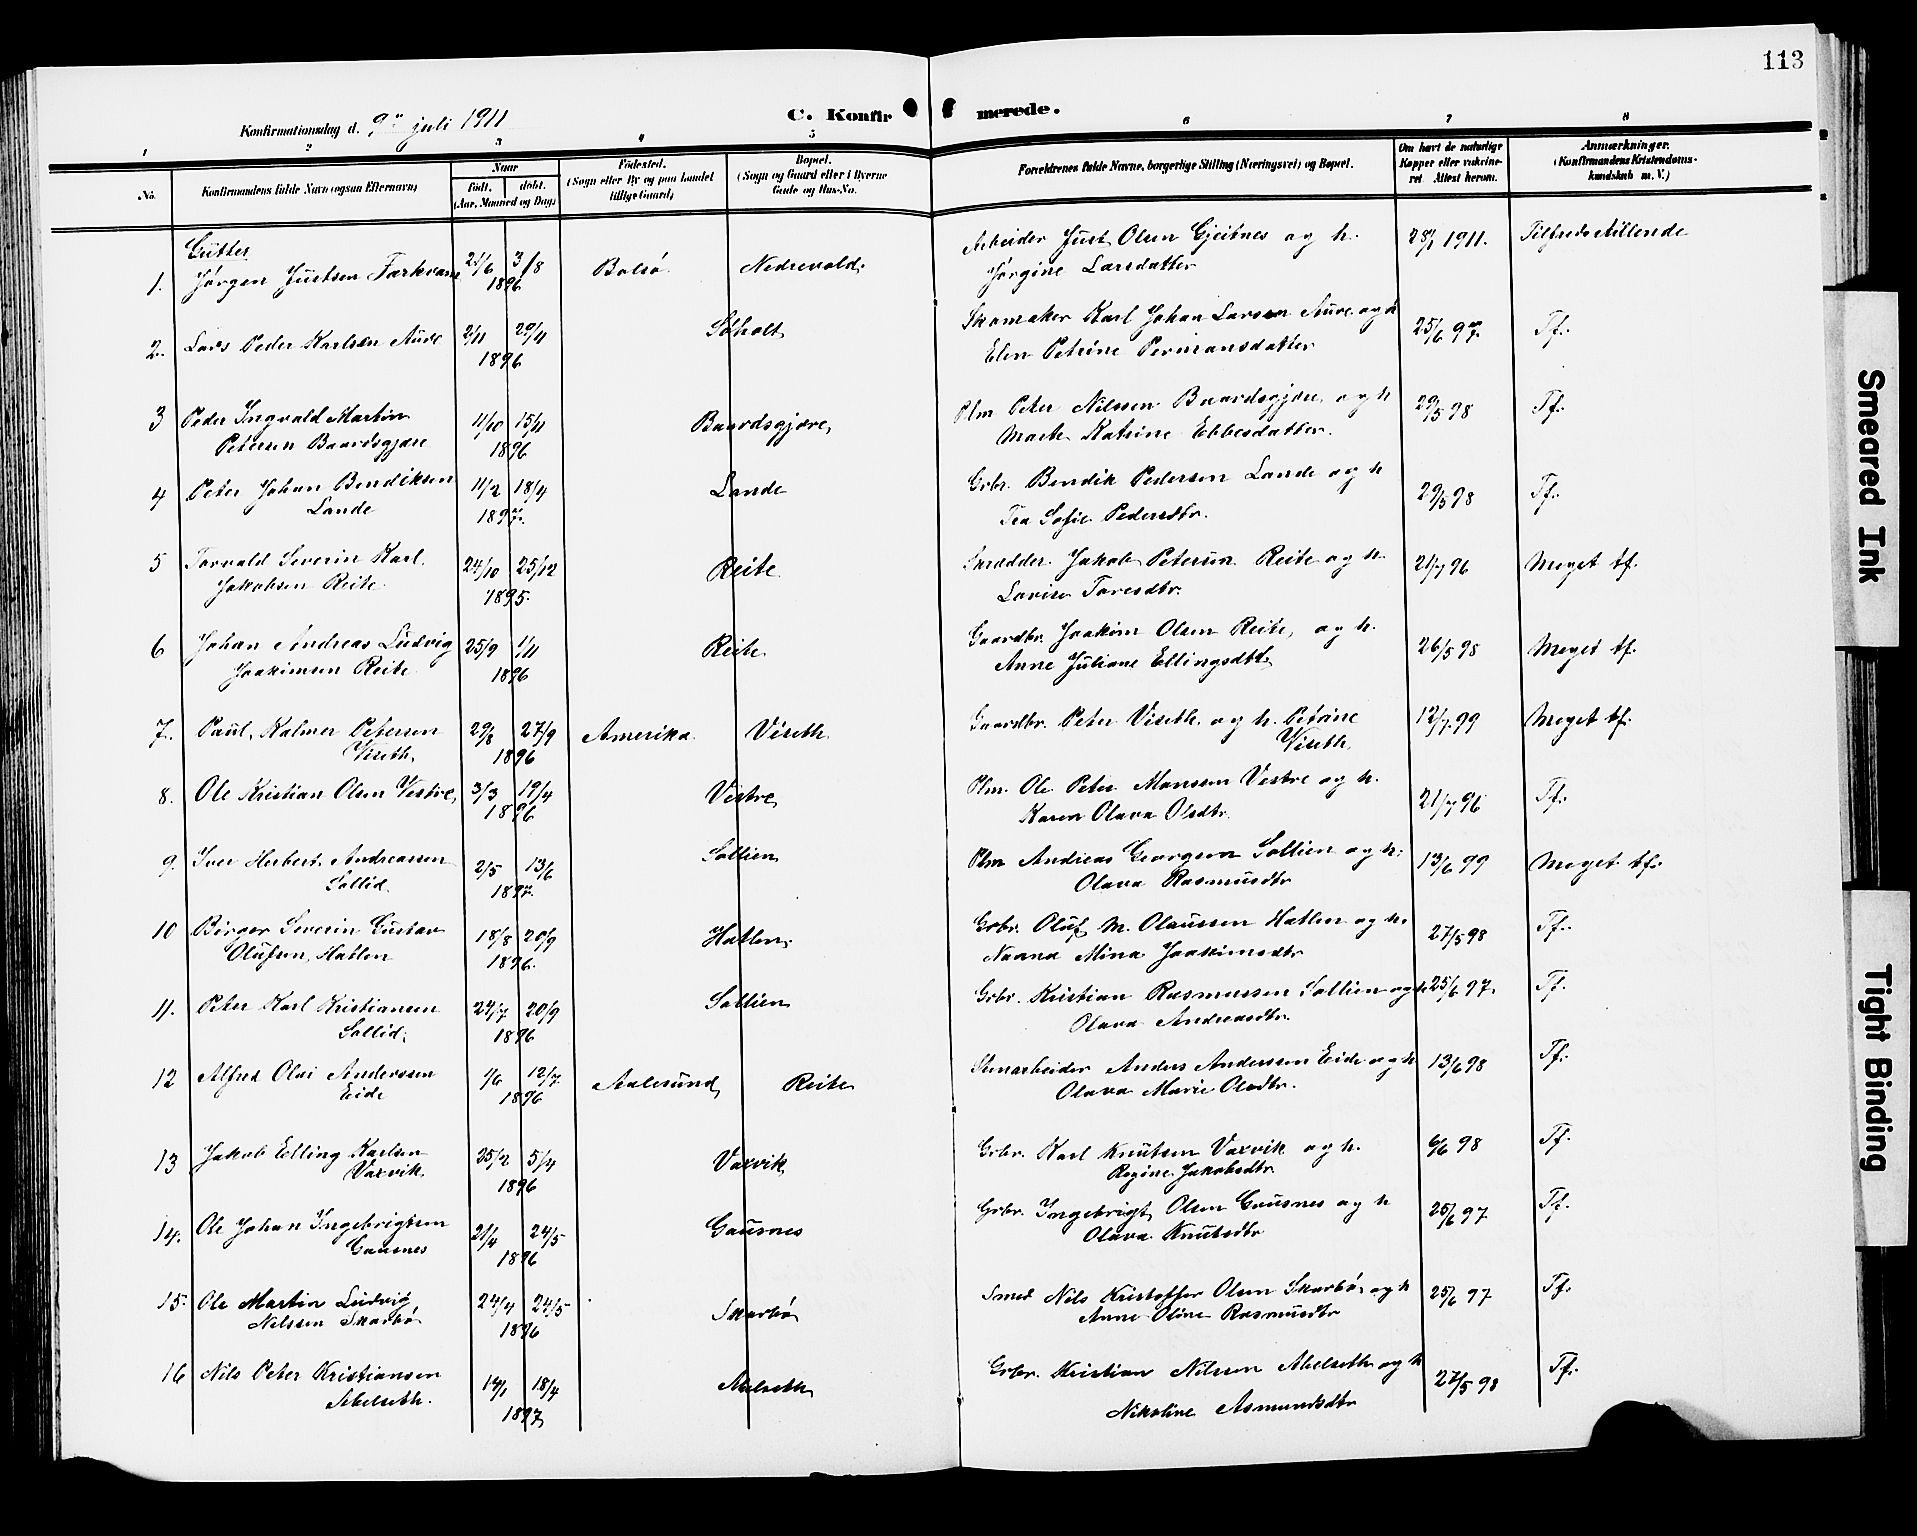 113
C. Konfirmerede.
Konfirmationsdag d. 9de juli 1911
1 2 3 4 5 6 7 8
No.
Konfirmandens fulde Navn (ogsaa Efternavn)
Naar
født. døbt.
(Aar, Maaned og Dag)
Fødested.
(Sogn eller By og paa Landet
tillige Gaard)
Bopæl.
(Sogn og Gaard eller i Byerne
Gade og Hus-No.
Forældrenes fulde Navne, borgerlige Stilling (Næringsvei) og Bopæl.
Om havt de naturlige
Kopper eller vaccine-
ret Attest herom.
Anmærkninger.
(Konfirmandens Kristendoms-
kundskab m. V.)
Gutter
1. Jørgen Justsen 21/6 3/8 Bolsø Nedrevold Arbeider Just Olsen Gjeitnes og h. 1911. Tilfredsstillende
1896 Jørgine Larsdatter
2. Lars Peder Karlsen Aure 2/11 29/4 Søholt Skomaker Karl Johan Larsen Aure og h 25/6 97 Tf.
1896 Elen Petrine
3 Peder Ingvald Martin 11/10 15/11 Baardsgjære Plm Peter Nilssen Baardsgjære og h 29/5 98 Tf.
Petersen Baardsgjære 1896 Marte Katrine Ebbesdatter.
4 Peter Johan Bendiksen 11/2 18/4 Lande Grbr. Bendik Pedersen Lande og h 29/5 98 Tf.
Lande 1897 Sofie Pedersdtr.
5 Torvald Severin Karl 24/10 25/12 Reite Skrædder Jakob Petersen Reite og h. 21/7 96 Meget tf.
Jakobsen Reite 1895. Lovise Toresdtr.
6 Johan Andreas Ludvig 25/9 1/11 Reite Gaardbr. Joakim Olsen Reite, og h. 26/5 98 Meget tf.
Joakimsen Reite 1896 Anne Juliane Ellingsdtr
7. Paul Kalmer Petersen 29/8 27/9 Amerika Viseth Gaardbr. Peter Viseth og h. Petrine 12/7 99 Meget tf.
Viseth 1896 Viseth
8. Ole Kristian Olsen Vestre 3/3 19/4 Vestre Plm. Ole Peter Monssen Vestre og h. 21/7 96 Tf.
1896 Karen Olava Olsdtr.
9. Iver Herbert Andreassen 2/5 13/6 Sollien Plm Andreas Georgsen Sollien og h. 13/6 99 Meget tf.
Sollid. 1897. Olava Rasmusdtr
10 Birger Severin Gustav 18/8 20/9 Hatlen. Grbr. Oluf M. Olaussen Hatlen og h. 27/5 98 Tf.
Olufsen Hatlen 1896. Mina Joakimsdtr
11. Peter Karl Kristiansen 24/7 20/9 Sollien Grbr. Kristian Rasmussen Sollien og h 25/6 97. Tf.
Sollid. 1896 Olava Andreasdtr.
12 Alfred Olai Anderssen 1/6 12/7 Aalesund Reite Stenarbeider Anders Anderssen Eide og h 13/6 98 Tf.
Eide 1896 Olava Marie Olsdtr.
13 Jakob Elling Karlsen 25/2 5/4 Vaxvik Grbr. Karl Knutsen Vaxvik og h. 6/6 98 Tf.
Vaxvik. 1896 Regine Jakobsdtr
14. Ole Johan Ingebrigtsen 21/4 24/5 Gausnes Grbr. Ingebrigt Olsen Gausnes og h 25/6 97 Tf.
Gausnes 1896 Olava Knutsdtr
15. Ole Martin Ludvig 24/4 24/5 Skorbø Smed Nils Kristoffer Olsen Skarbø og h 25/6 97 Tf.
Nilssen Skarbø 1896 Anne Oline Rasmusdtr
16 Nils Peter Kristiansen 14/1 18/4 Abelseth Grbr. Kristian Nilssen Abelseth og h 27/5 98 Tf.
Abelseth. 1897 Nikoline Asmundsdtr
Smeared Ink
Tight Binding